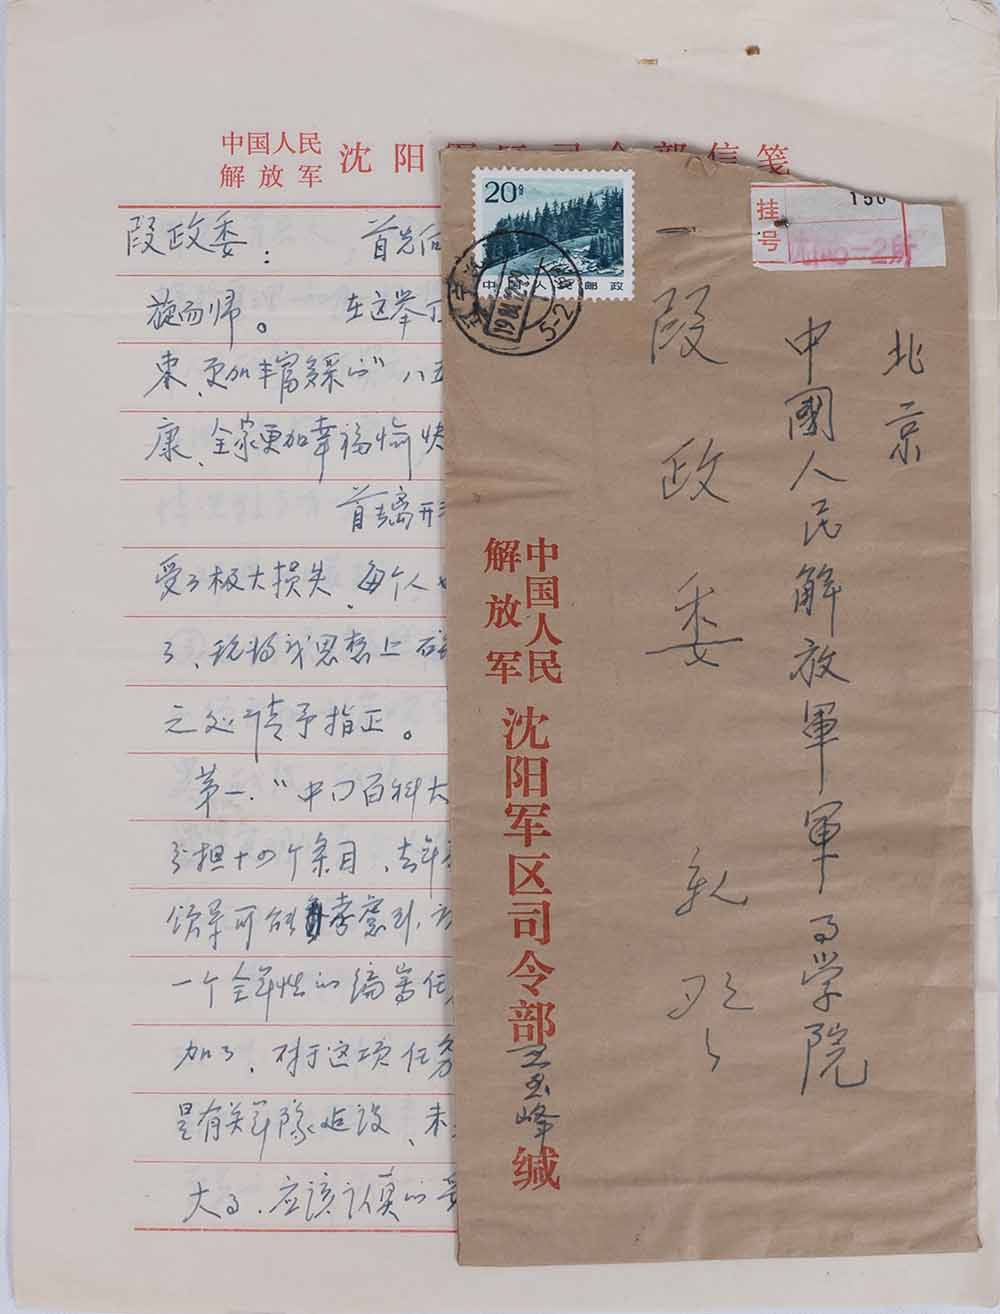 中国人民
解放军
沈阳
信笺
段政委：
首先向
旋而归。 在这举
更加丰富多采的"八五
康、全家更加幸福愉快
首长离开
受了极大损失，每个人
了，现将我思想上
之处请予指正。
第一、"中国百科大
分担十四个条目，去年
领导可能 考虑到
一个全军性的编写任
加了，对于这项任务
是有关军队建设、未
大事，应该认真的
20分
中国人民邮政
挂号
150
北京
中國人民解放軍軍事学院
一
段政委 親啟
中国人民
解放军
沈阳军区司令部
王玉峰
缄